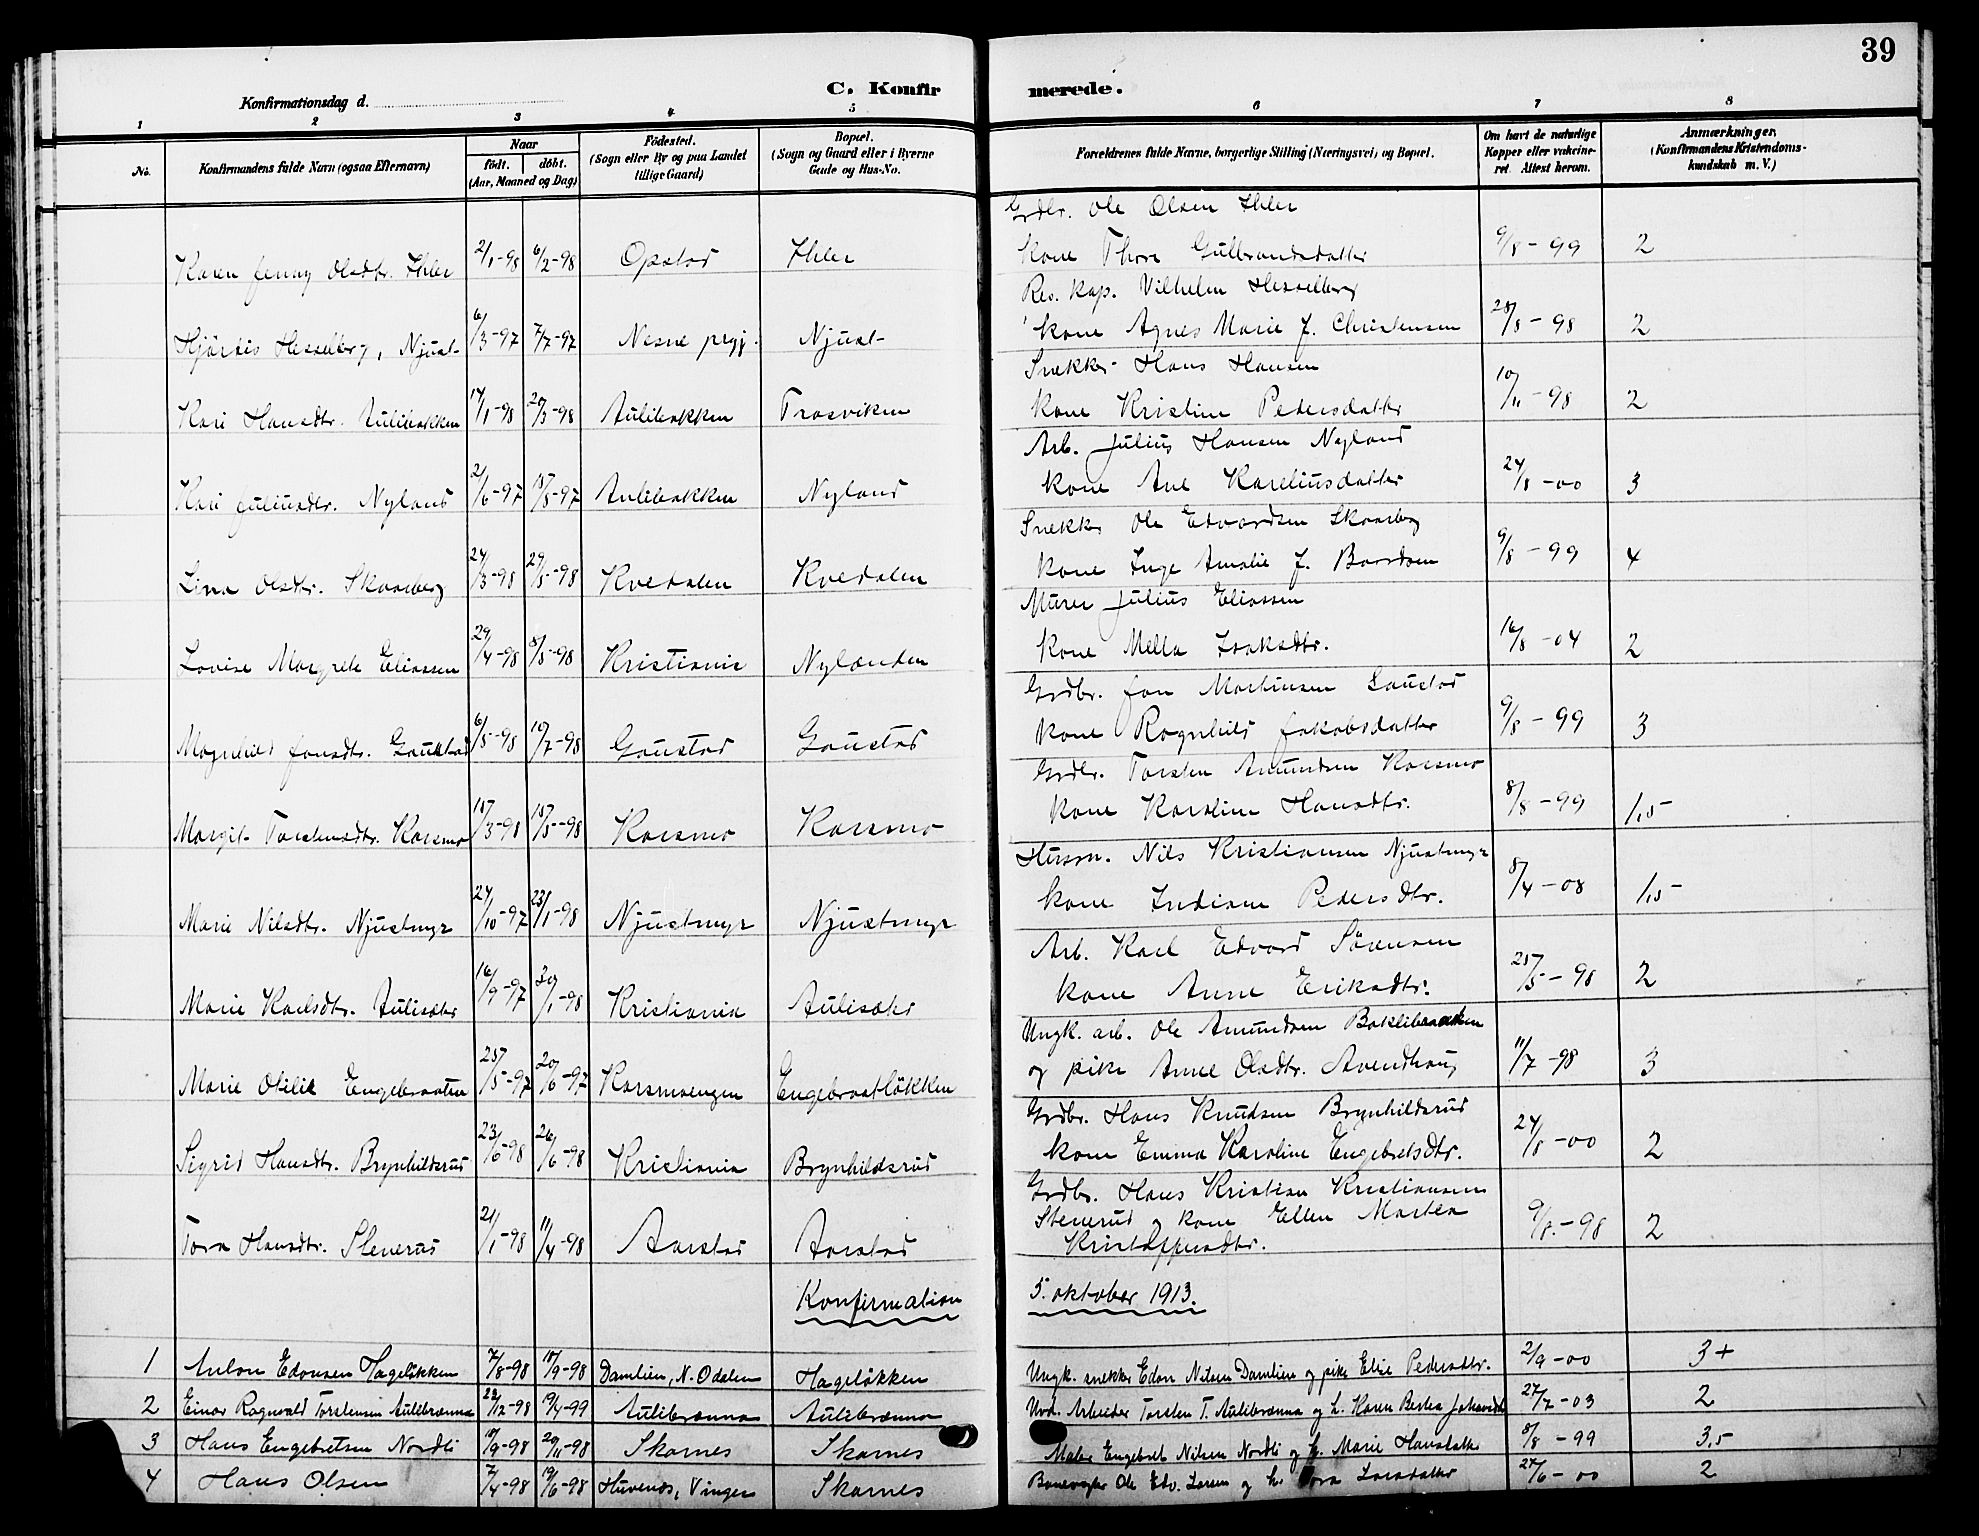 39
Konfirmationsdag d.
C. Konfirmerede.
1 2 3 4 5 6 7 8
No. Konfirmandens fulde Navn (ogsaa Efternavn) Naar født. døbt. (Aar, Maaned og Dag) Fødested. (Sogn eller By og paa Landet tillige Gaard) Bopæl. (Sogn og Gaard eller i Byerne Gade og Hus-No. Forældrenes fulde Navne, borgerlige Stilling (Næringsvei) og Bopæl. Om havt de naturlige Kopper eller vakcineret. Attest herom. Anmærkninger. (Konfirmandens Kristendomskundskab m. V.)
Grdbr. Ole Olsen Ihler
Karen Jenny Olsdtr. Ihler 2/1-98 6/2-98 Opstad Ihler kone Thora Gulbrandsdatter 9/8-99 2
Res. kap. Vilhelm Hesselberg
Hjørdis Hesselberg, Njust- 6/3-97 7/7-97 Nesne prgj. Njust- kone Agnes Marie f. Christensen 28/8-98 2
Snekker Hans Hansen
Kari Hansdtr. Aulibakken 17/1-98 20/3-98 Aulibakken Trosviken kone Kristine Pedersdatter 10/11-98 2
Arb. Julius Hansen Nyland
Kari Juliusdtr. Nyland 2/6-97 15/8-97 Aulibakken Nyland kone Ane Kareliusdatter 24/8-00 3
Snekker Ole Edvardsen Skaarberg
Lina Olsdtr. Skaarberg 24/3-98 29/5-98 Kvedalen Kvedalen kone Inga Amalie f. Bardsen 9/8-99 4
Murer Julius Eliassen
Lovise Margrete Eliassen 29/4-98 8/5-98 Kristiania Nylænden kone Mella Isaksdtr. 16/8-04 2
Grdbr. Jon Martinsen Gaustad
Magnhild Jonsdtr. Gaustad 6/5-98 10/7-98 Gaustad Gaustad kone Ragnhild Jakobsdatter 9/8-99 3
Grdbr. Torsten Amundsen Korsmo
Margit Torstensdtr. Korsmo 15/3-98 15/5-98 Korsmo Korsmo kone Karoline Hansdtr. 8/8-99 1,5
Husm. Nils Kristiansen Njustmyr
Marie Nilsdtr. Njustmyr 24/10-97 23/1-98 Njustmyr Njustmyr kone Indiane Pedersdtr. 8/4-08 1,5
Arb. Karl Edvard Sørensen
Marie Karlsdtr. Aulisæter 16/9-97 30/1-98 Kristiania Aulisæter kone Anne Eriksdtr. 25/5-98 2
Ungk. arb. Ole Amundsen Baklibraaten
Marie Otilie Engebraaten 25/5-97 20/6-97 Korsmoengen Engebraatløkken og pike Anne Olsdtr. Avendhaug 11/7-98 3
Grdbr. Hans Knudsen Brynhildsrud
Sigrid Hansdtr. Brynhildsrud 23/6-98 26/6-98 Kristiania Brynhildsrud kone Emma Karoline Engebretsdtr. 24/8-00 2
Grdbr. Hans Kristian Kristiansen
Tora Hansdtr. Stenerud 21/1-98 11/4-98 Aarstad Aarstad Stenerud og kone Ellen Martea 9/8-98 2
Kristoffersdtr.
Konfirmation 5. oktober 1913.
1 Anton Edonsen Hageløkken 7/8-98 18/9-98 Damlien, N. Odalen Hageløkken Ungk. snekker Edon Nilsen Damlien og pike Elise Pedersdtr. 2/9-00 3+
2 Einar Ragnvald Torstensen Aulibrænna 22/12-98 19/4-99 Aulibrænna Aulibrænna Arbeider Torsten T. Aulibrænna og h. Karen Bertea 27/7-03 2
3 Hans Engebretsen Nordli 18/9-98 20/11-98 Skarnes Skarnes Maler Engebret Nilsen Nordli og h. Marie Hansdatter 8/8-99 3,5
4 Hans Olsen 7/4-98 19/6-98 Huvenes, Vinger Skarnes Banevogter Ole Edv. Larsen og h. Tora Larsdatter 27/6-00 2